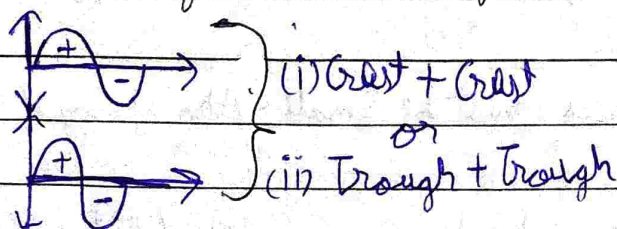 +
-
(i) Crest + Crest
or
+
-
(ii) Trough + Trough